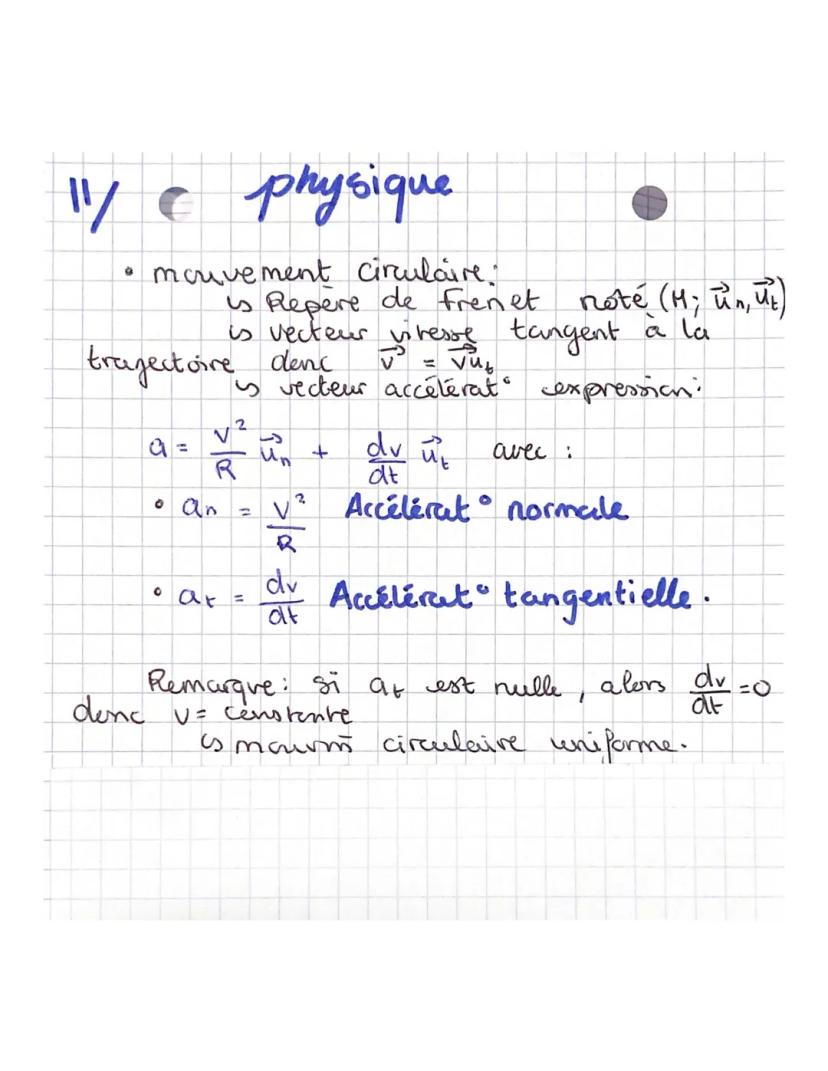 11/ physique
• mouvement circulaire:
↳ Repère de frenet noté (M; u⃗n, u⃗t)
↳ vecteur vitesse tangent à la
trajectoire donc v⃗ = vu⃗t
↳ vecteur accélérat° expression:
a = v²/R u⃗n + dv/dt u⃗t avec :
• an = v²/R Accélérat° normale
• at = dv/dt Accélérat° tangentielle.
Remarque: si at est nulle, alors dv/dt =0
donc v= constante
↳ mouvm̄ circulaire uniforme.